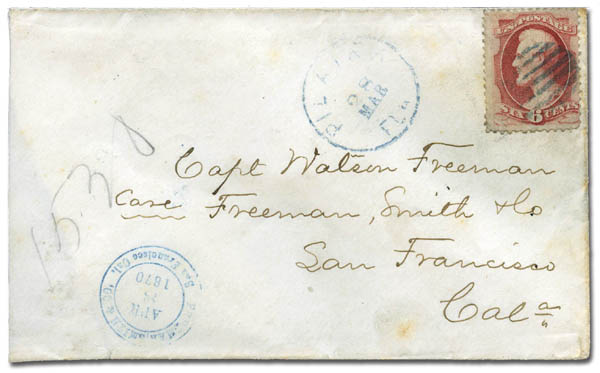 U.S. POSTAGE
SIX 6 CENTS
PILATKA
28
MAR
Fla
Capt Watson Freeman
Care Freeman, Smith & Co
San Francisco
Cala
1530
APR
1870
San Francisco Cal.